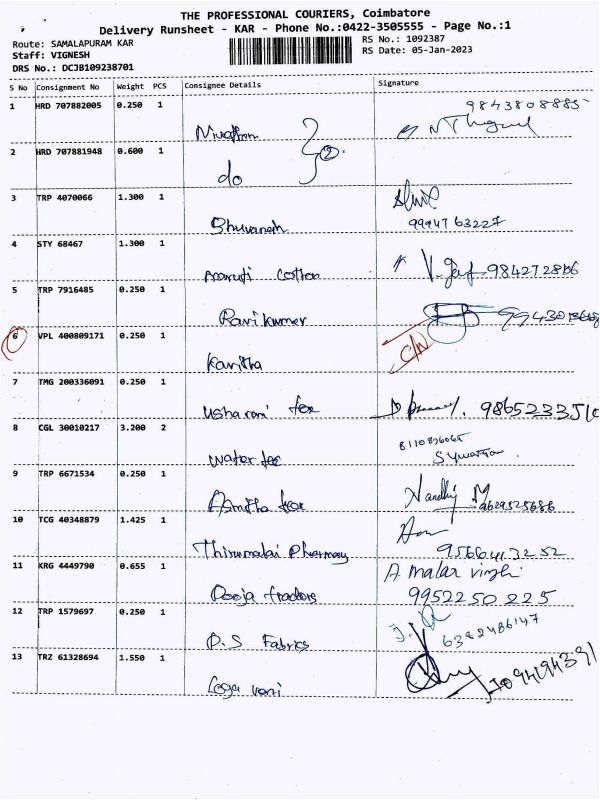 THE PROFESSIONAL COURIERS, Coimbatore
Delivery Runsheet - KAR - Phone No.:0422-3505555 - Page No.:1
Route: SAMALAPURAM KAR
Staff: VIGNESH
DRS No.: DCJB109238701
RS No.: 1092387
RS Date: 05-Jan-2023
S No Consignment No Weight PCS Consignee Details Signature
1 HRD 707882005 0.250 1 9843808885
2 HRD 707881948 0.600 1 do
3 TRP 4070066 1.300 1 Bhuvanesh 9994763227
4 STY 68467 1.300 1 Maruti Cotton
5 TRP 7916485 0.250 1 Ravi kumar
6 VPL 400809171 0.250 1 Kavitha C/N
7 TMG 200336091 0.250 1 Usharani tex 9865233510
8 CGL 30010217 3.200 2 Water tec
9 TRP 6671534 0.250 1 Asmitha tex Nandhij M 9629525686
10 TCG 40348879 1.425 1 Thirumalai Pharmacy
11 KRG 4449790 0.655 1 Pooja traders A. malar vizhi 9952250225
12 TRP 1579697 0.250 1 P.S Fabrics 6382486147
13 TRZ 61328694 1.550 1 Loga vani